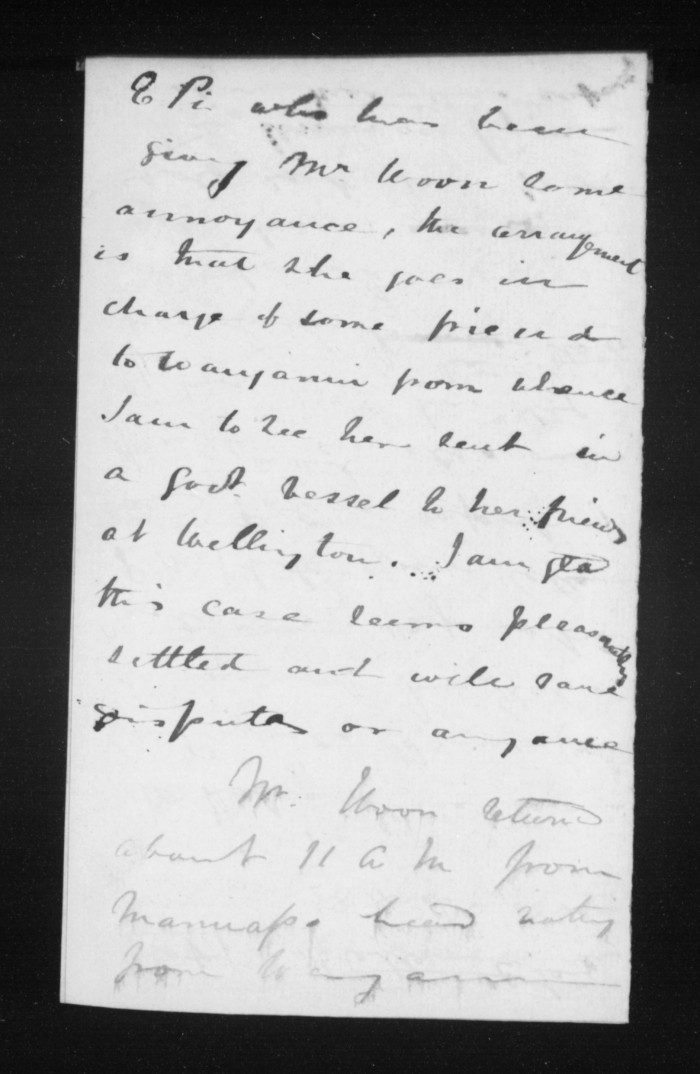 E Pi who has been
giving Mr Woon some
annoyance, the arrangement
is that she goes in
charge of some friend
to Wanganui from whence
I am to see her sent in
a Govt. vessel to her friends
at Wellington. I am glad
this case seems pleasantly
settled and will save
disputes or anyance
Mr. Woon returned
about 11 A M from
head
from Wanganui